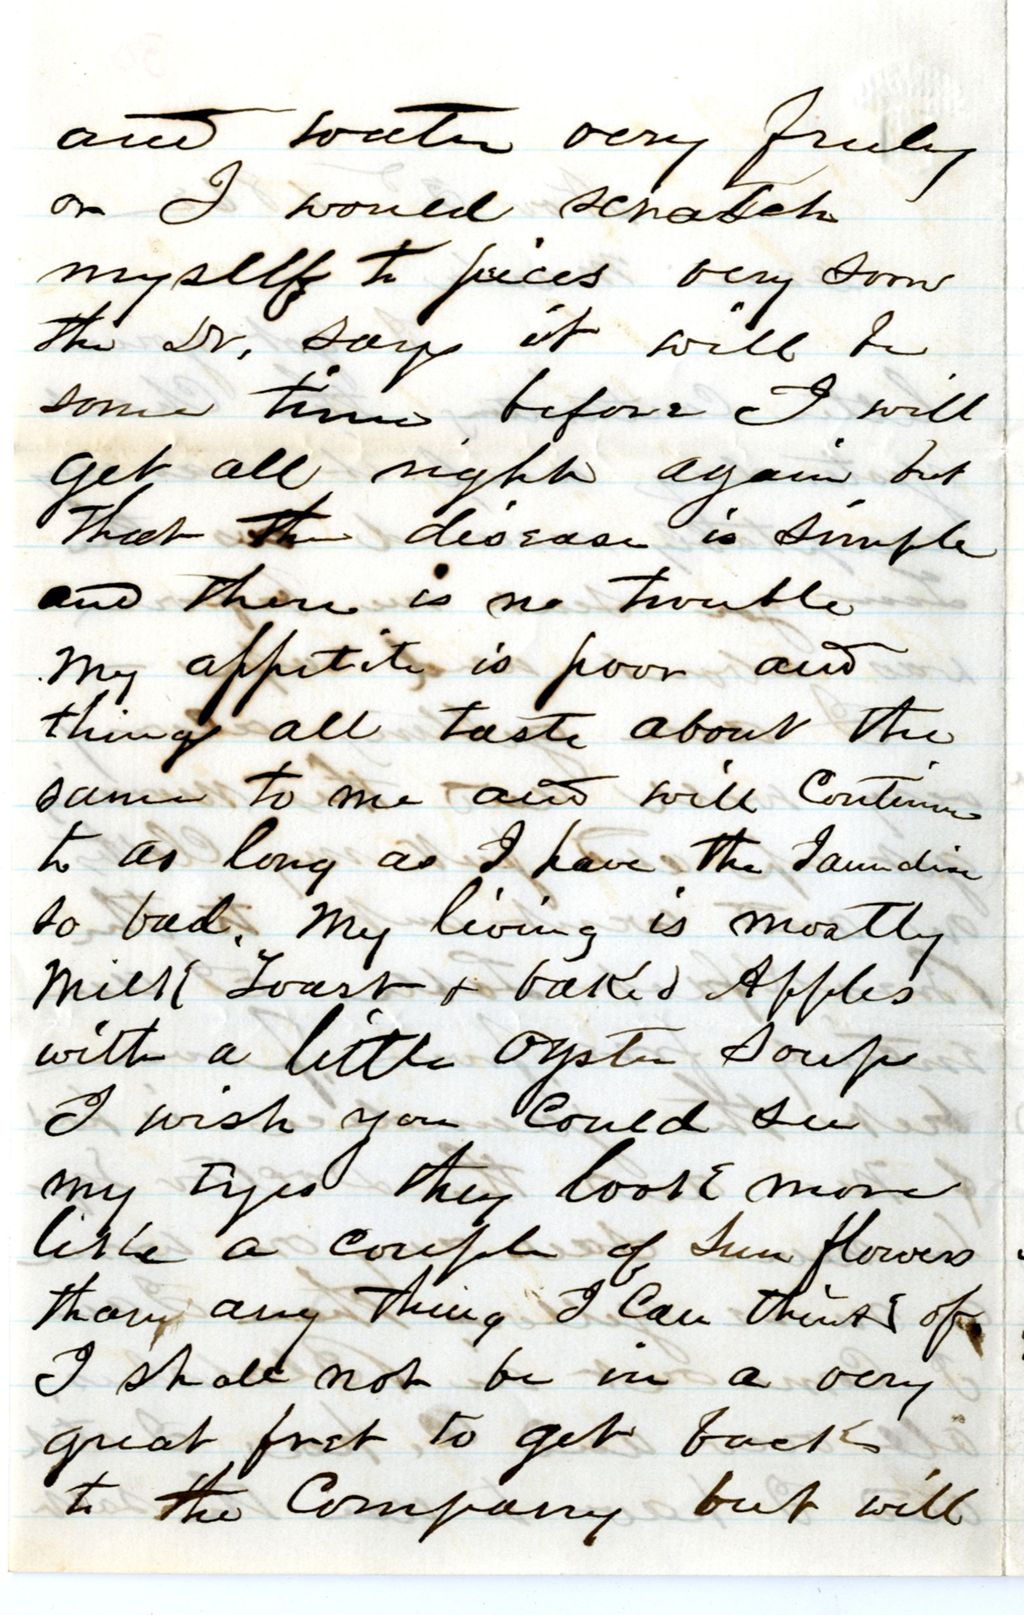 and water very freely
or I would scratch
myself to pieces very soon
the Dr. says it will be
some time before I will
get all right again but
that the disease is simple
and there is no trouble
My appetite is poor and
things all taste about the
same to me and will Continue
to as long as I have the Jaundise
so bad. My living is mostly
Milk Toast & baked Apples
with a little Oyster Soup
I wish you Could see
my Eyes they look more
like a Couple of Sun flowers
than any thing I Can think of
I shall not be in a very
great fret to get back
to the Company but will